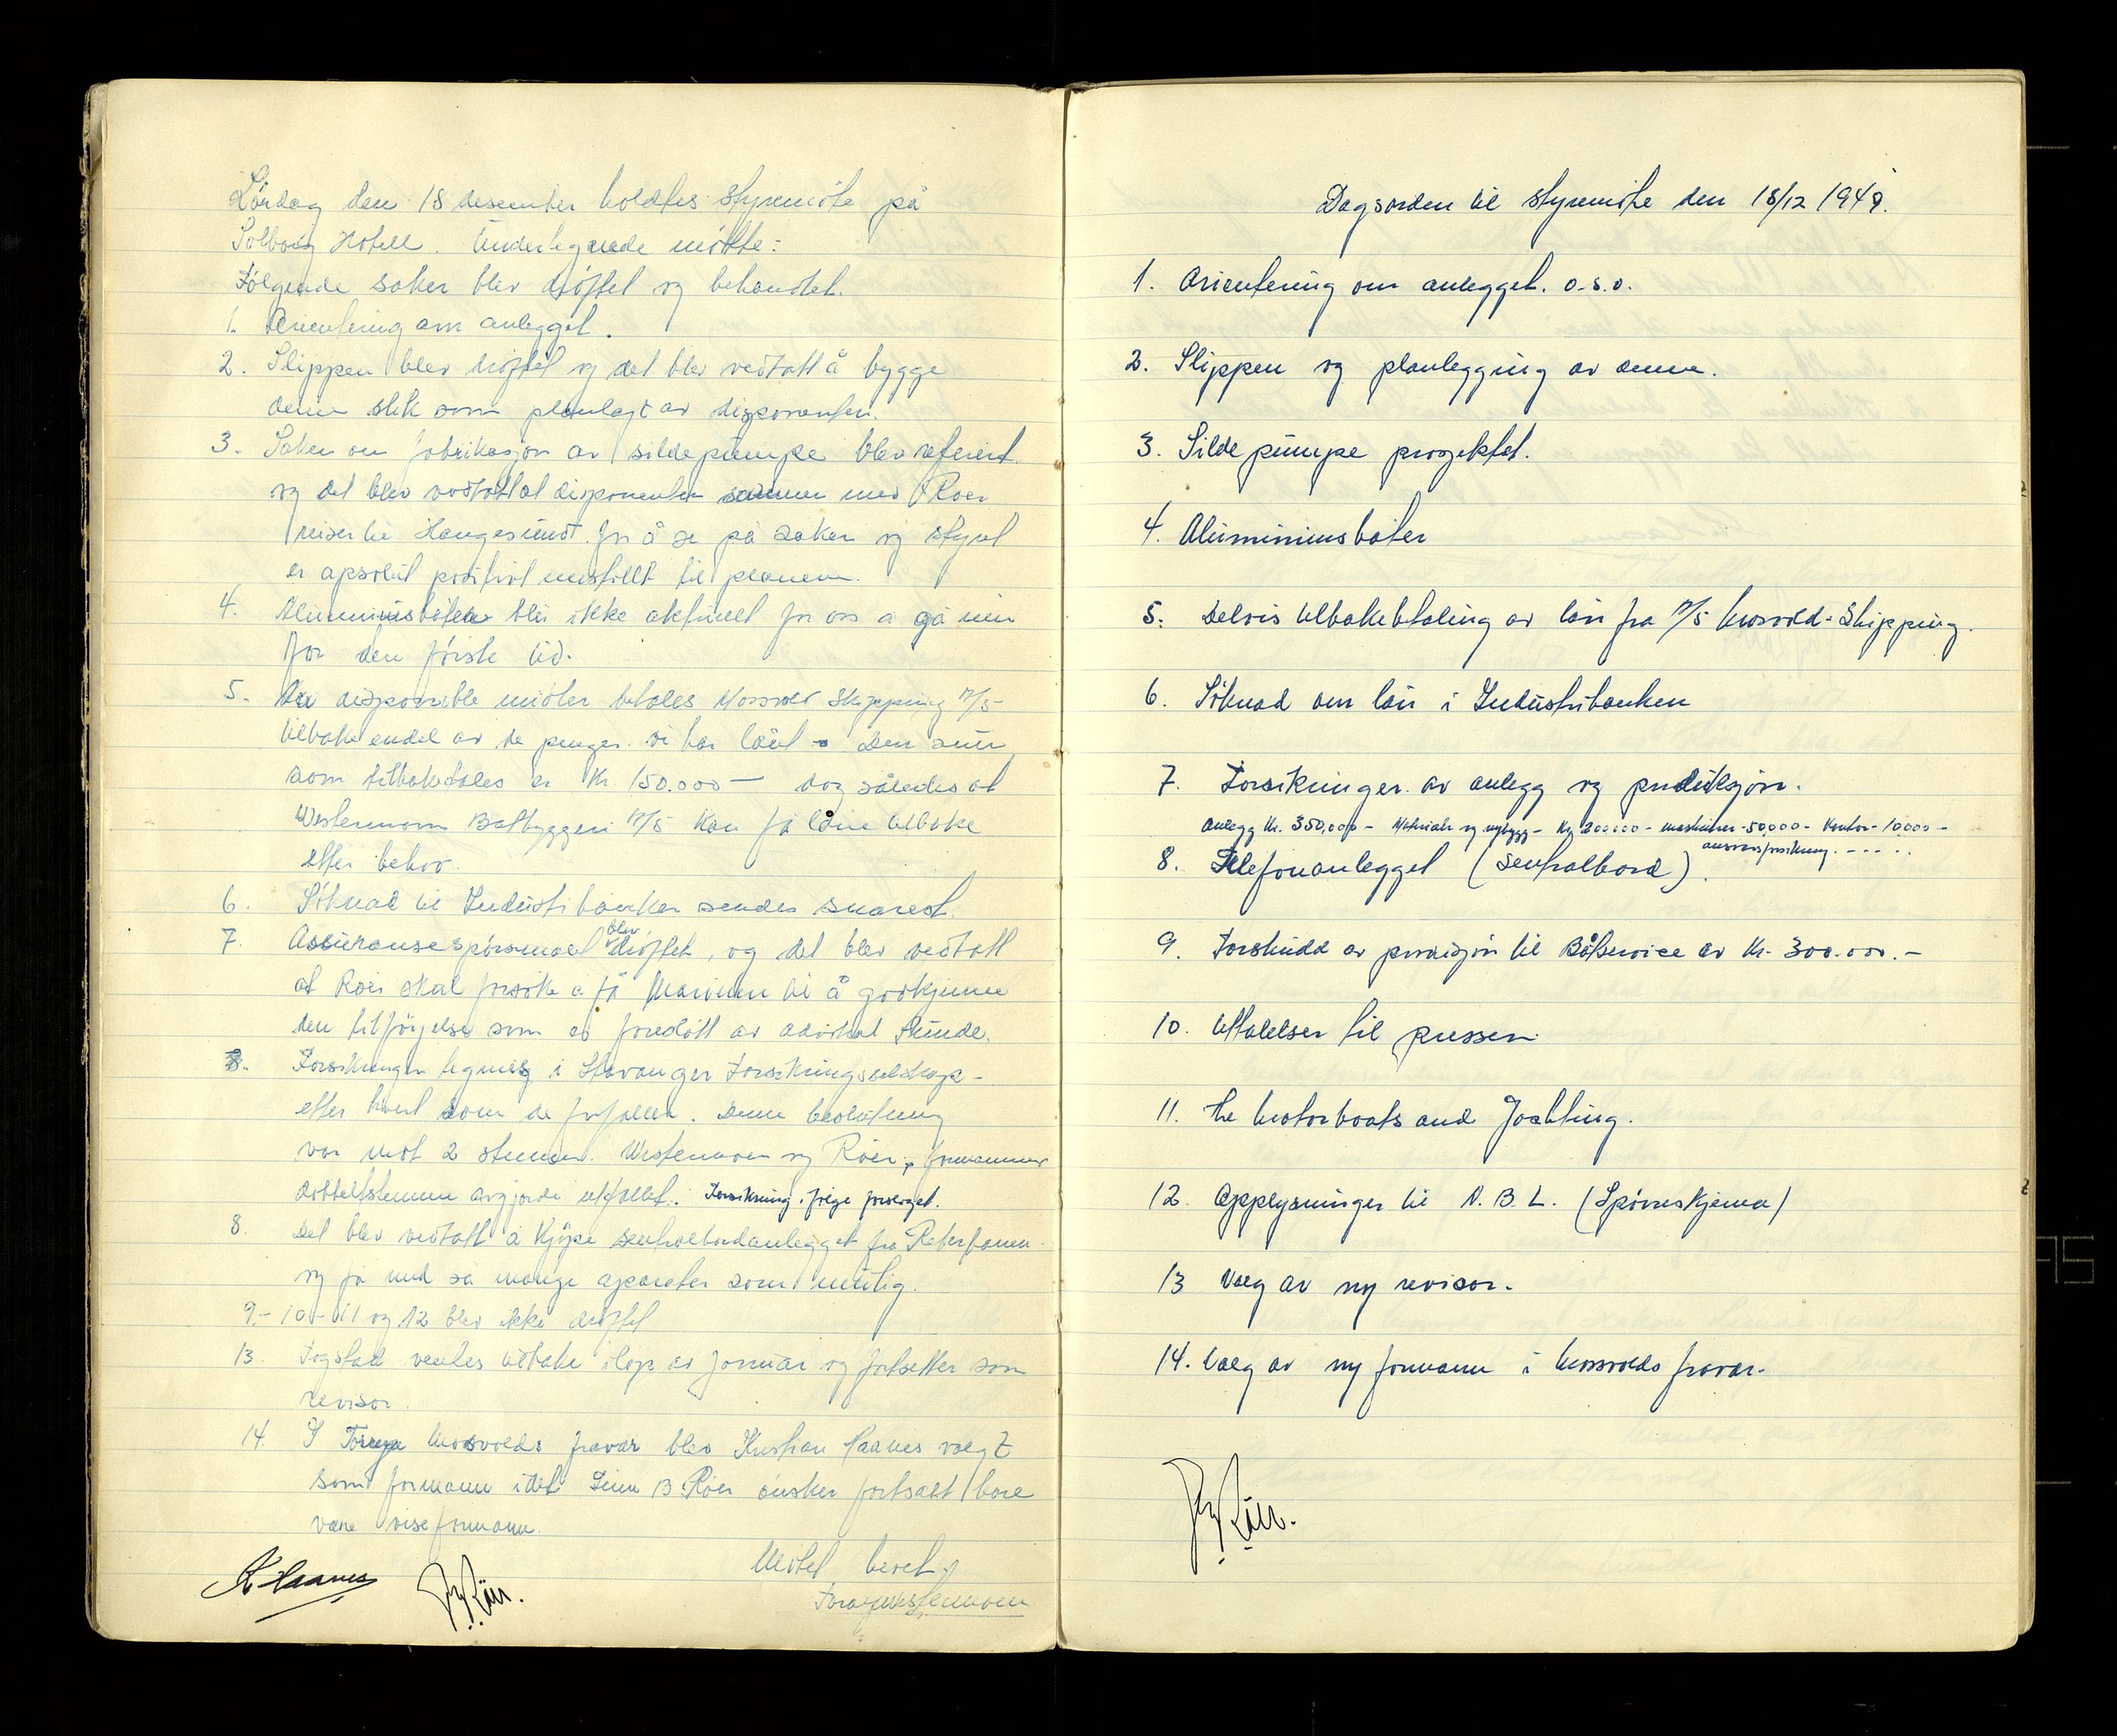 Lördag den 18 desember holdtes styremöte på
Solborg Hotell. Undertegnede mötte:
Fölgende saker blev dröftet og behandlet.
1. Orientering om anlegget.
2. Slippen blev dröftet og det blev vedtatt å bygge
denne slik som planlagt av disponenten.
3. Saken om fabrikasjon av sildepumpe blev referert
og det blev vedtatt at disponenten sammen med Röer
reiser til Haugesund for å se på saken og styret
er apsolut positivt innstillt til planen.
4. Aluminiusbåter blir ikke aktuelt for oss å gå inn
for den förste tid.
5. Av disponible midler betales Mosvold Shipping A/S
tilbake endel av de penger vi har lånt - Den sum
som tilbakebetales er Kr. 150.000 — dog således at
Westermoen Båtbyggeri A/S kan få låne tilbake
etter behov.
6. Söknad til Industribanken sendes snarest.
7. Assuransespörsmael blev dröftet, og det blev vedtatt
at Röer skal forsöke å få Marinen til å godkjenne
den tilföyelse som er foreslått av advokat Sunde.
8. Forsikringen tegnes i Stavanger Forsikringsselskap -
etter hvert som de forfaller. Denne beslutning
var mot 2 stemmer. Westermoen og Röer, formannens
dobbeltstemme avgjorde utfallet. Forsikring ifölge forslaget.
8. Det blev vedtatt å kjöpe sentralbordanlegget fra
og få med så mange aparater som mulig.
9 - 10 - 11 og 12 blev ikke dröftet
13. Fogstad ventes tilbake i löp av januar og fortsetter som
revisor.
14. I Mosvolds fravær blev Kristian Haanes valgt
som formann idet Finn B. Röer önsker fortsatt bare
være viseformann.
Mötet hevet
K Haanes
Dagsorden til styremöte den 18/12 1948.
1. Orientering om anlegget. o.s.v.
2. Slippen og planlegging av denne.
3. Silde pumpe prosjektet.
4. Aluminiumsbåter
5. Delvis tilbakebetaling av lån fra A/S Mosvold-Shipping.
6. Söknad om lån i Industribanken
7. Forsikringer av anlegg og produksjon.
Anlegg Kr. 350,000 - Materiale og nybygg - Kr. 200.000 - maskiner - 50,000 - Kontor - 10.000 -
ansvarsforsikring. - - - - .
8. Telefonanlegget (Sentralbord).
9. Forskudd av provisjon til Båtservice av Kr. 300.000.-
10. Uttalelser til pressen.
11. The Motorboats and Jachting.
12. Opplysninger til N. B. L. (Spörreskjema)
13 Valg av ny revisor.
14. Valg av ny formann i Mosvolds fravær.